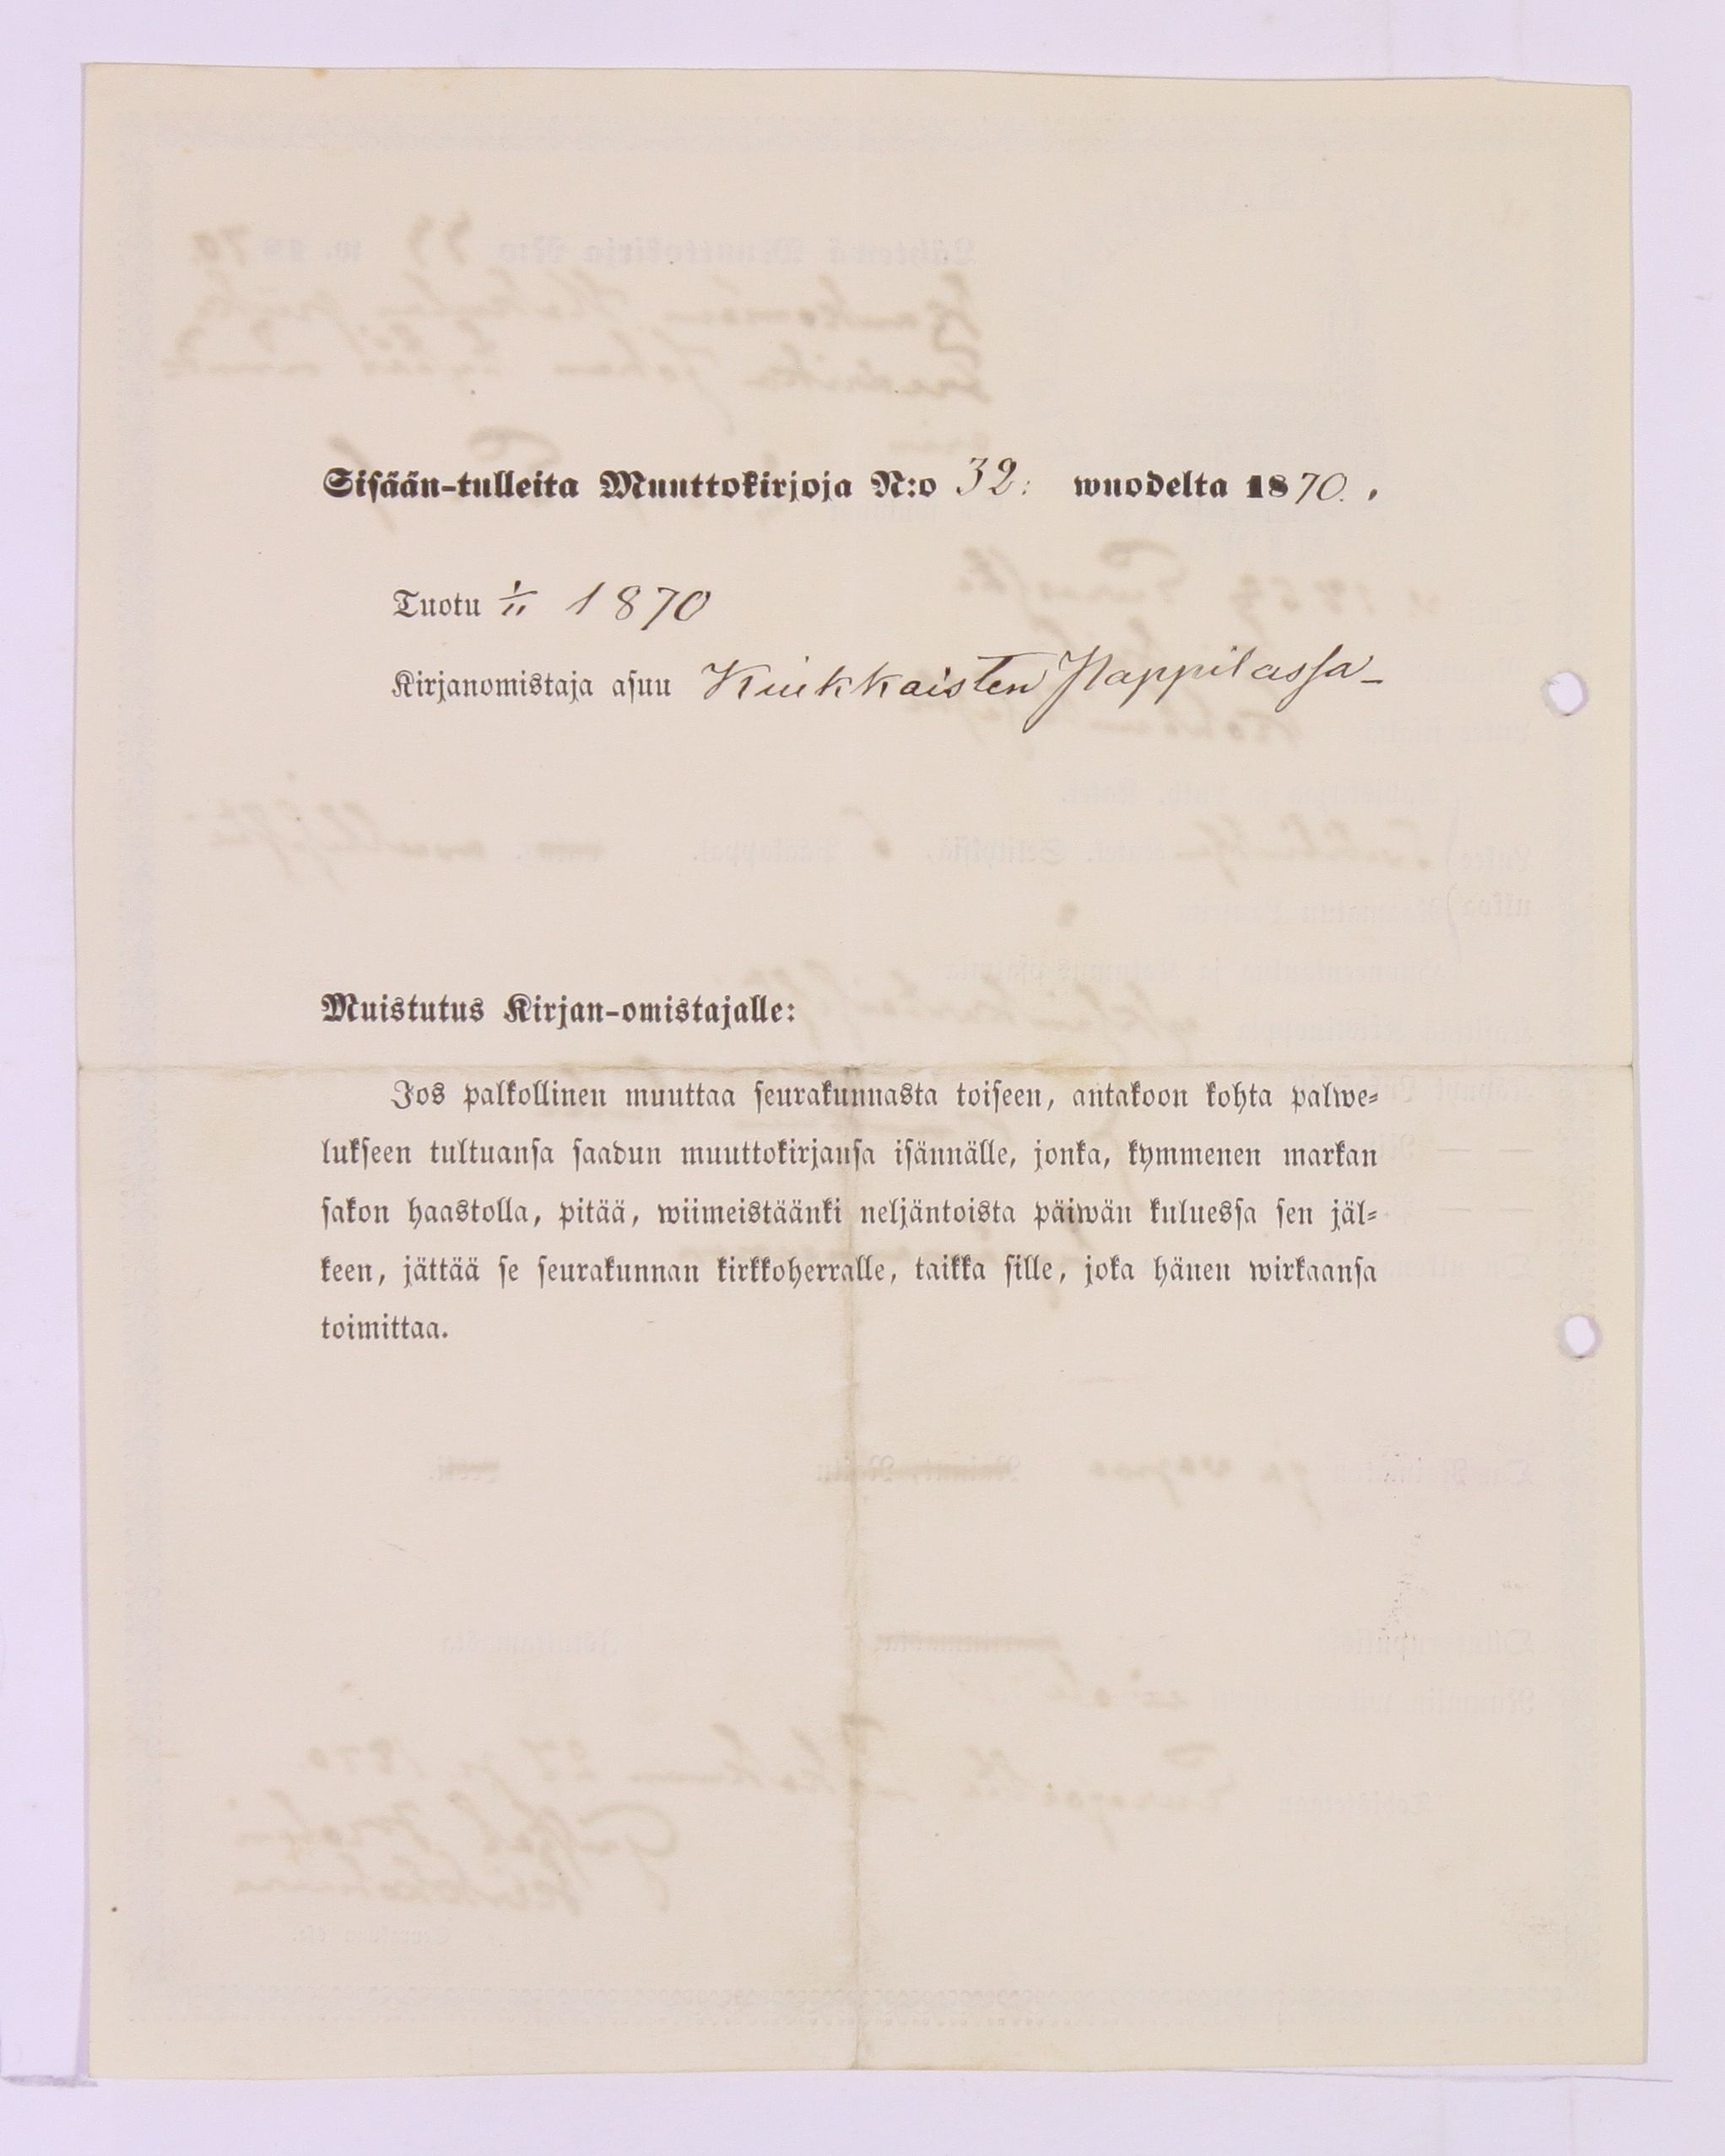 Sisään-tulleita Muuttokirjoja N:o 32: wuodelta 1870.
Tuotu 1/11 1870
Kirjanomistaja asuu Kiukkaisten Pappilassa
Muistutus Kirjan-omistajalle:
Jos palkollinen muuttaa seurakunnasta toiseen, antakoon kohta palwe-
lukseen tultuansa saadun muuttokirjansa isännälle, jonka, kymmenen markan
sakon haastolla, pitää, wiimeistäänki neljäntoista päiwän kuluessa sen jäl-
keen, jättää se seurakunnan kirkkoherralle, taikka sille, joka hänen wirkaansa
toimittaa.